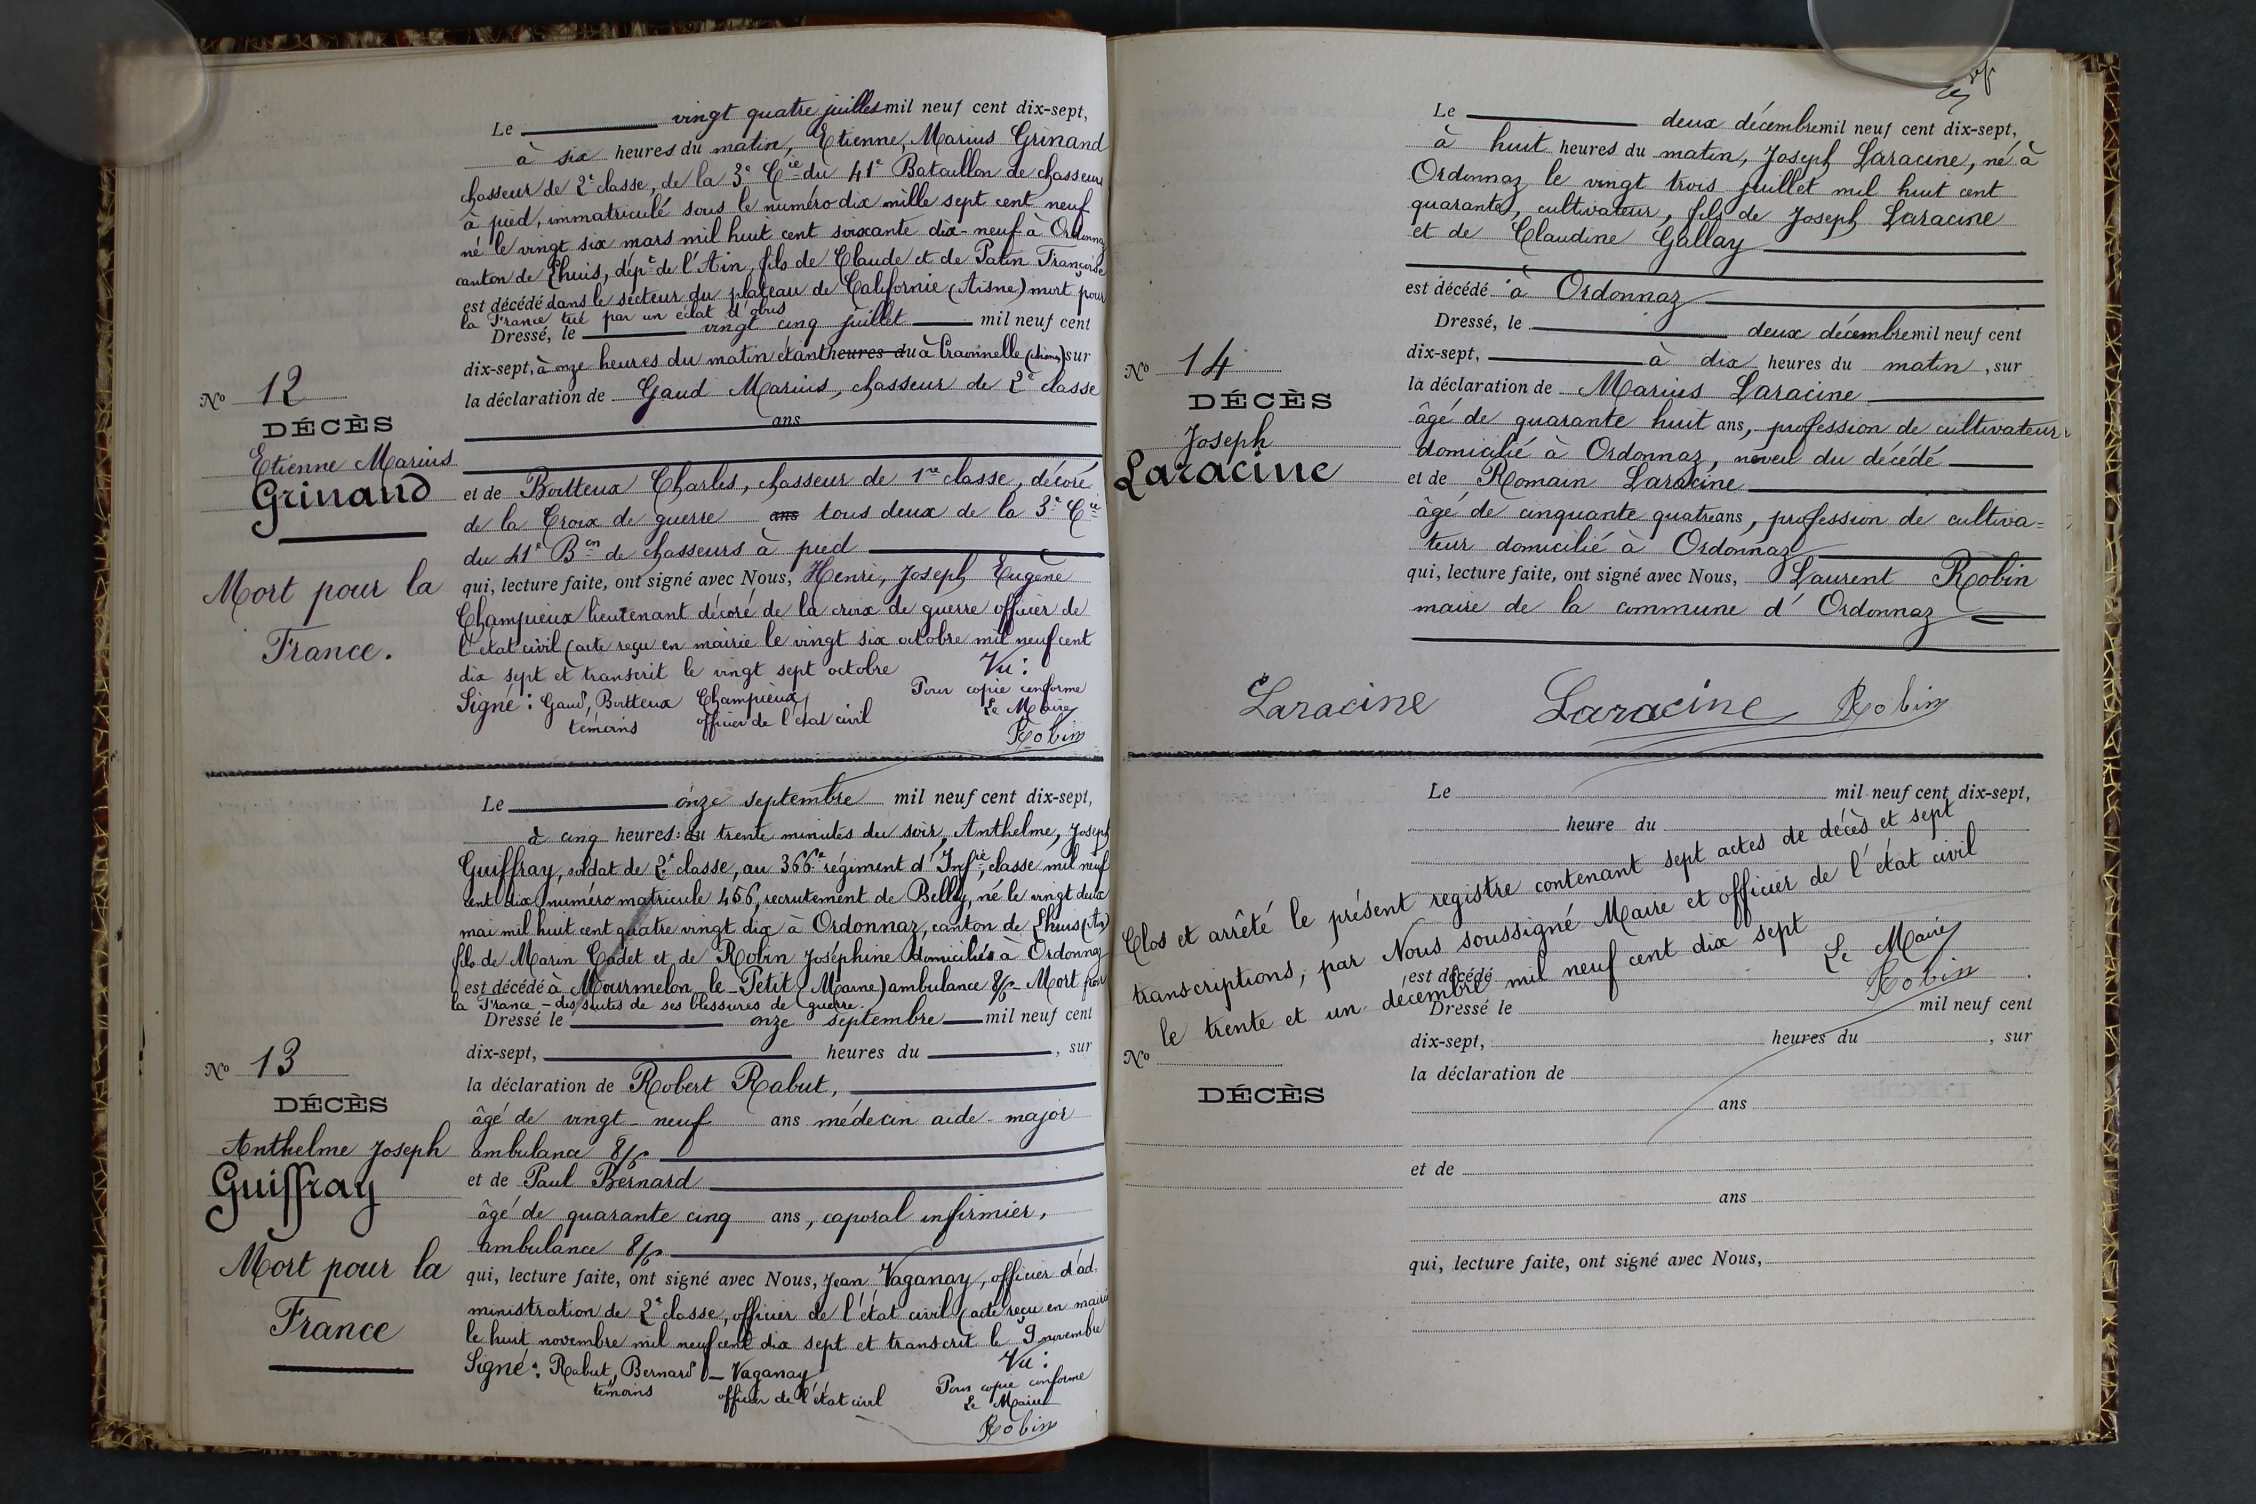 Le vingt quatre juillet mil neuf cent dix-sept,
à six heures du matin, Etienne, Marius Grinand
chasseur de 2e classe, de la 3e Cie du 41e Bataillon de chasseurs
à pied, immatriculé sous le numéro dix mille sept cent neuf
né le vingt six mars mil huit cent soixante dix-neuf à Ordonnaz
canton de Lhuis, dépt de l'Ain, fils de Claude et de Patin Françoise
est décédé dans le secteur du plateau de Californie (Aisne) mort pour
la France tué par un éclat d'obus
Dressé, le vingt cinq juillet mil neuf cent
dix-sept, à onze heures du matin étant heures du à (Aisne) sur
la déclaration de Gaud Marius, chasseur de 2e classe
ans
et de Boitteux Charles, chasseur de 1re classe, décoré
de la Croix de guerre ans tous deux de la 3e Cie
du 41e Bon de chasseurs à pied
qui, lecture faite, ont signé avec Nous, Henri, Joseph Eugène
Champieux lieutenant décoré de la croix de guerre officier de
l'état civil (acte reçu en mairie le vingt six octobre mil neuf cent
dix sept et transcrit le vingt sept octobre
Vu :
Signé : Gaud, Boitteux Champieux
témoins officier de l'état civil
Pour copie conforme
Le Maire
Robin
No 12
DÉCÈS
Etienne Marius
Grinand
Mort pour la
France.
Le onze septembre mil neuf cent dix-sept,
à cinq heures : du trente minutes du soir, Anthelme, Joseph
Guiffray, soldat de 2e classe, au 366e régiment d'Infrie, classe mil neuf
cent dix numéro matricule 456, recrutement de Belley, né le vingt deux
mai mil huit cent quatre vingt dix à Ordonnaz, canton de Lhuis (Ain)
fils de Marin Cadet et de Robin Joséphine domiciliés à Ordonnaz
est décédé à Mourmelon-le-Petit (Marne) ambulance 8/6 - Mort pour
la France - des suites de ses blessures de guerre.
Dressé le onze septembre mil neuf cent
dix-sept, heures du , sur
la déclaration de Robert Rabut,
âgé de vingt-neuf ans médecin aide-major
ambulance 8/6
et de Paul Bernard
âgé de quarante cinq ans, caporal infirmier,
ambulance 8/6
qui, lecture faite, ont signé avec Nous, Jean Vaganay, officier d'ad-
ministration de 2e classe, officier de l'état civil (acte reçu en mairie
le huit novembre mil neuf cent dix sept et transcrit le 9 novembre
Vu :
Signé : Rabut, Bernard - Vaganay
témoins officier de l'état civil
Pour copie conforme
Le Maire
Robin
No 13
DÉCÈS
Anthelme Joseph
Guiffray
Mort pour la
France
Le deux décembre mil neuf cent dix-sept,
à huit heures du matin, Joseph Laracine, né à
Ordonnaz le vingt trois juillet mil huit cent
quarante, cultivateur, fils de Joseph Laracine
et de Claudine Gallay
est décédé à Ordonnaz
Dressé, le deux décembre mil neuf cent
dix-sept, à dix heures du matin, sur
la déclaration de Marius Laracine
âgé de quarante huit ans, profession de cultivateur
domicilié à Ordonnaz, neveu du décédé
et de Romain Laracine
âgé de cinquante quatre ans, profession de cultiva=
teur domicilié à Ordonnaz
qui, lecture faite, ont signé avec Nous, Laurent Robin
maire de la commune d'Ordonnaz
Laracine Laracine Robin
No 14
DÉCÈS
Joseph
Laracine
Le mil neuf cent dix-sept,
heure du
Clos et arrêté le présent registre contenant sept actes de décès et sept
transcriptions, par Nous soussigné Maire et officier de l'état civil
le trente et un décembre mil neuf cent dix sept
Le Maire
Robin
est décédé
Dressé le mil neuf cent
dix-sept, heures du , sur
la déclaration de
ans
et de
ans
qui, lecture faite, ont signé avec Nous,
No
DÉCÈS